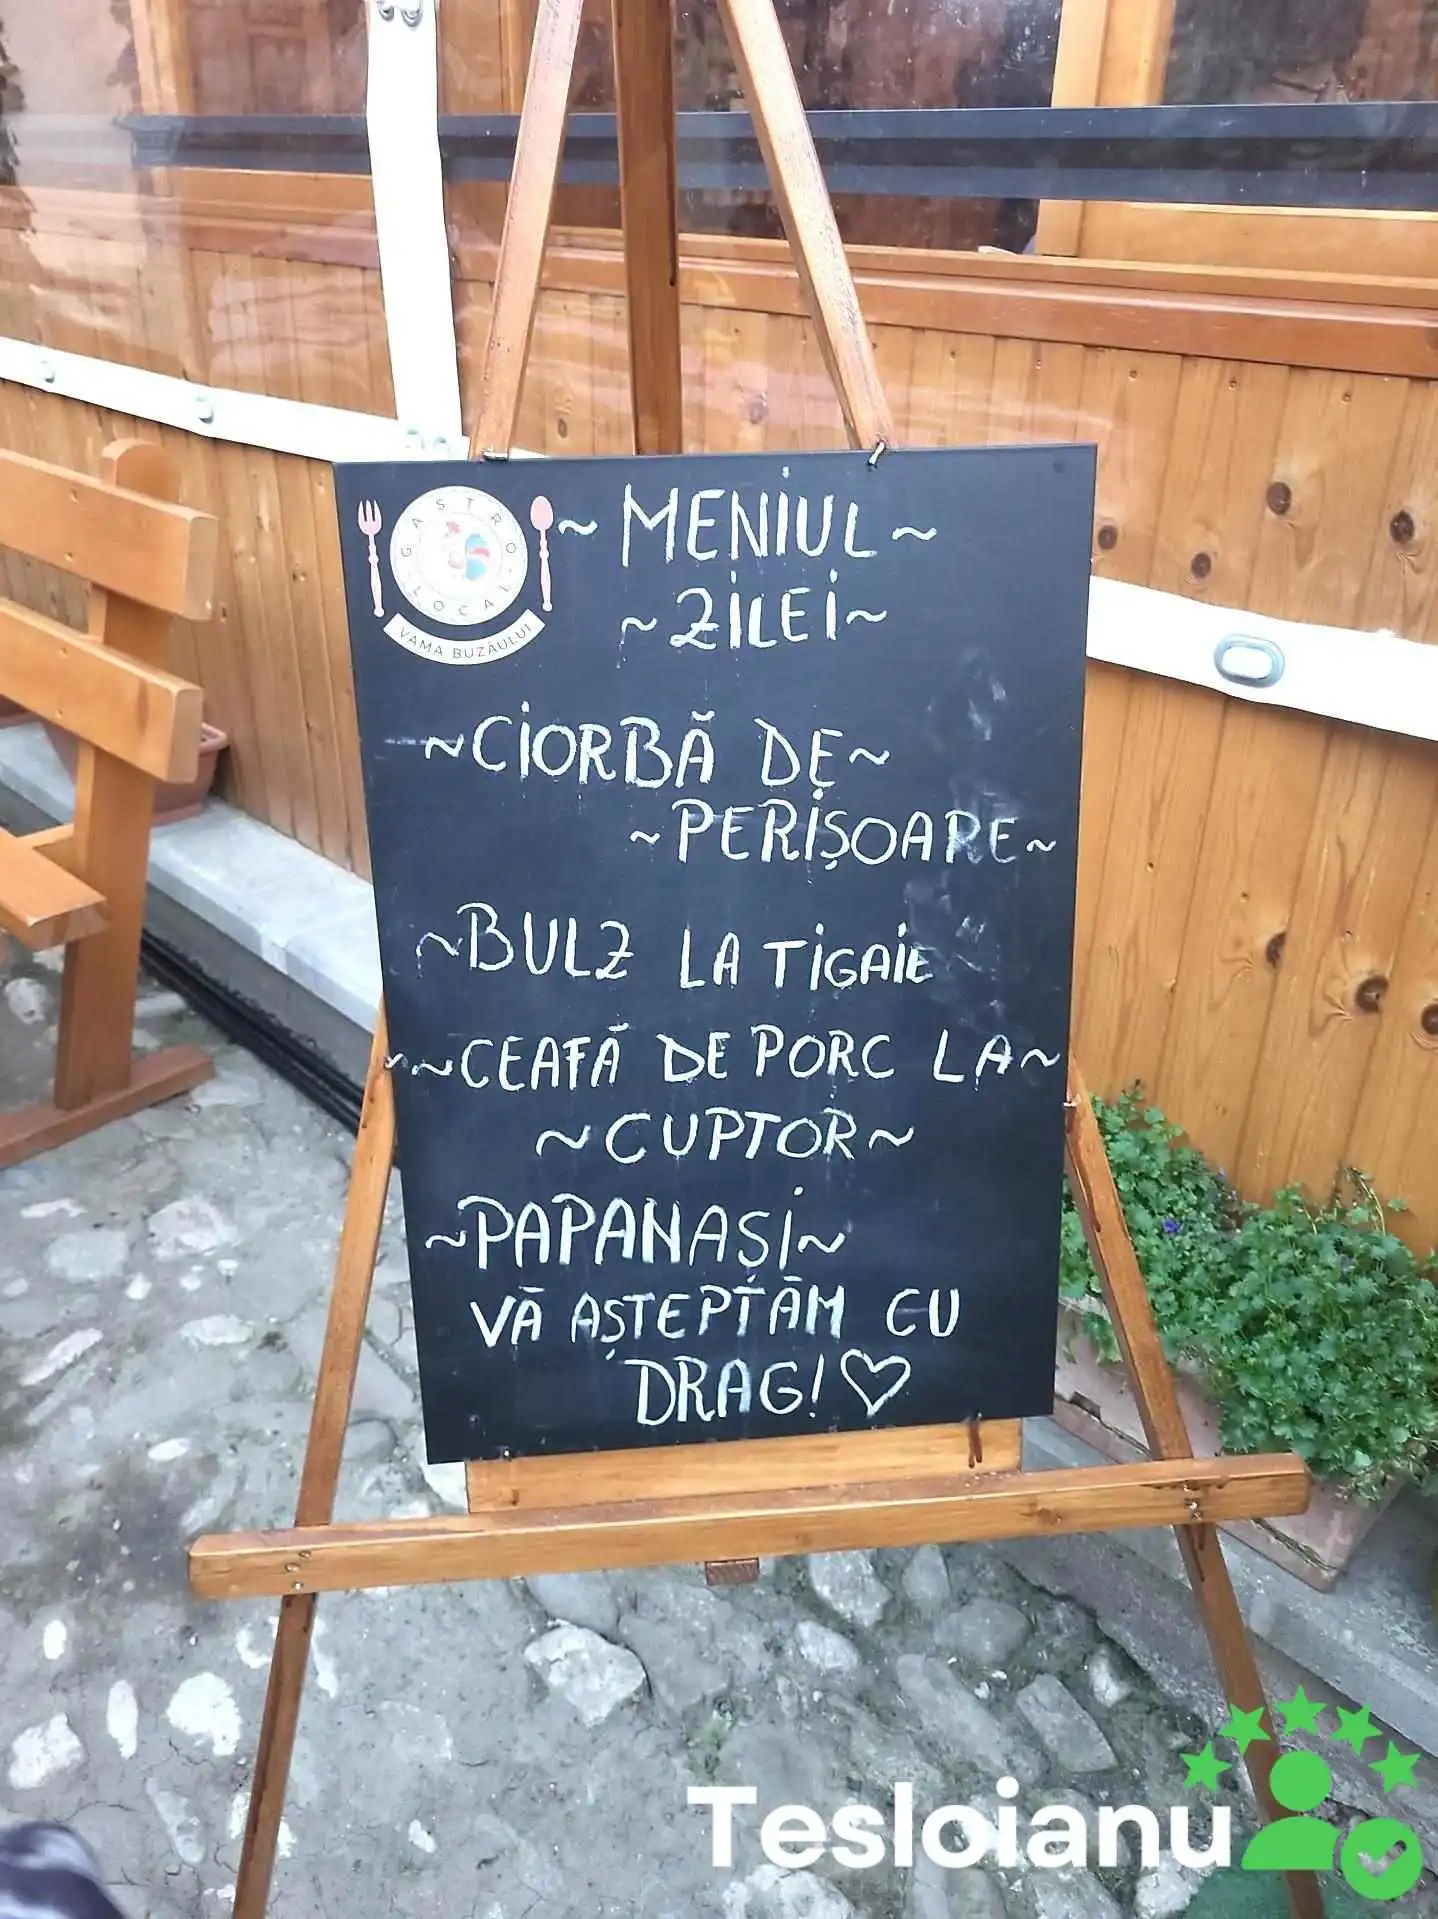 GASTRO LOCAL
VAMA BUZĂULUI
~ MENIUL ~
~ ZILEI ~
~ CIORBĂ DE ~
~ PERIȘOARE ~
~ BULZ LA TIGAIE
~ CEAFĂ DE PORC LA ~
~ CUPTOR ~
~ PAPANAȘI ~
VĂ AȘTEPTĂM CU
DRAG! ♡
Tesloianu